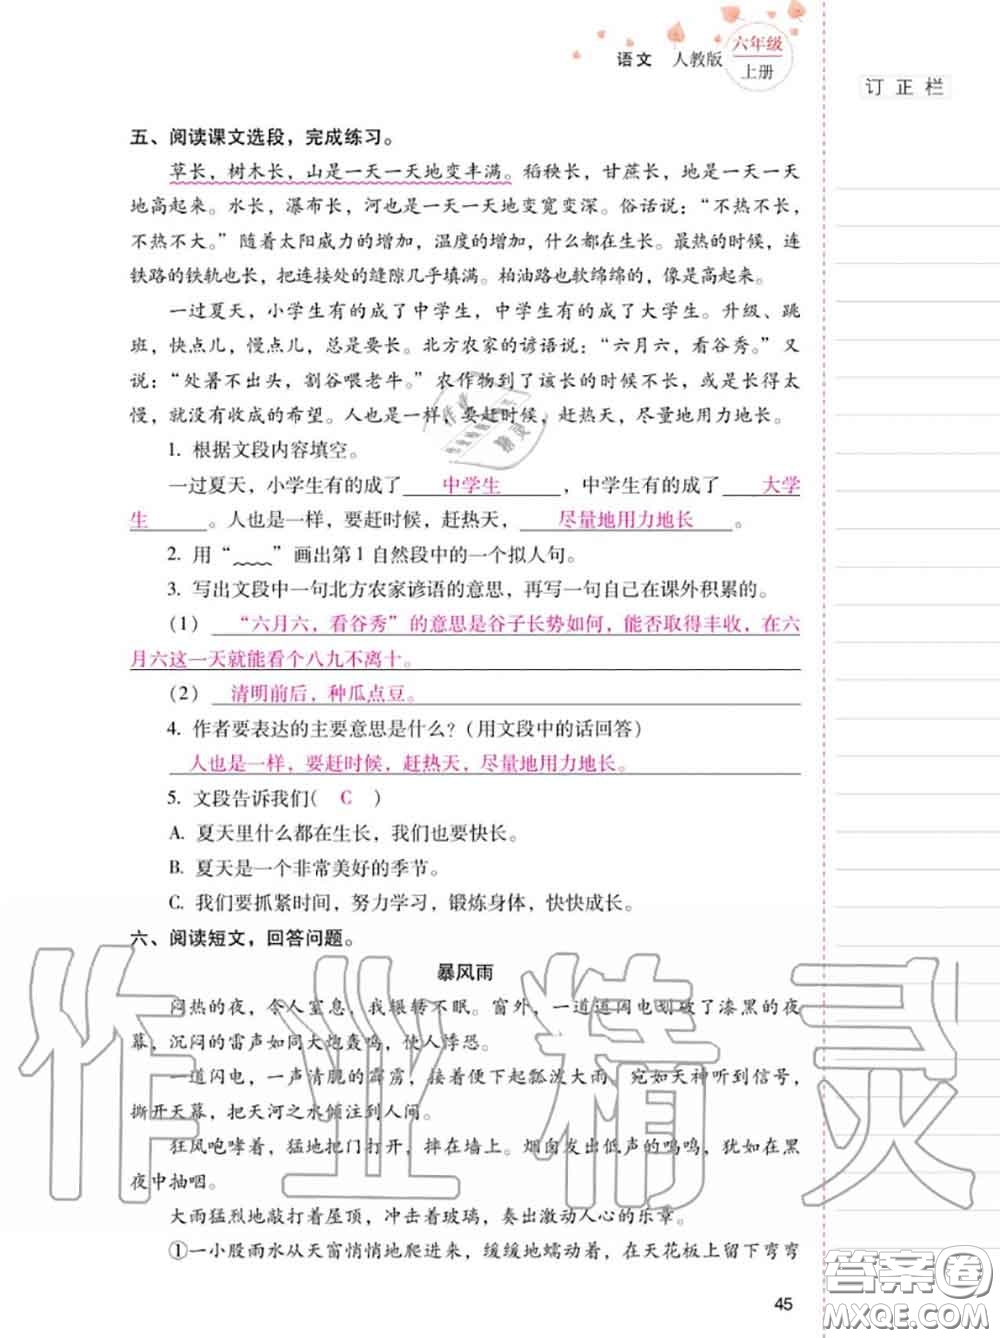 语文 人教版 六年级
上册
订正栏
五、阅读课文选段，完成练习。
草长，树木长，山是一天一天地变丰满。稻秧长，甘蔗长，地是一天一天
地高起来。水长，瀑布长，河也是一天一天地变宽变深。俗话说：“不热不长，
不热不大。”随着太阳威力的增加，温度的增加，什么都在生长。最热的时候，连
铁路的铁轨也长，把连接处的缝隙几乎填满。柏油路也软绵绵的，像是高起来。
一过夏天，小学生有的成了中学生，中学生有的成了大学生。升级、跳
班，快点儿，慢点儿，总是要长。北方农家的谚语说：“六月六，看谷秀。”又
说：“处暑不出头，割谷喂老牛。”农作物到了该长的时候不长，或是长得太
慢，就没有收成的希望。人也是一样，要赶时候，赶热天，尽量地用力地长。
1. 根据文段内容填空。
一过夏天，小学生有的成了 中学生 ，中学生有的成了 大学
生 。人也是一样，要赶时候，赶热天， 尽量地用力地长 。
2. 用“﹏﹏”画出第1自然段中的一个拟人句。
3. 写出文段中一句北方农家谚语的意思，再写一句自己在课外积累的。
（1） “六月六，看谷秀”的意思是谷子长势如何，能否取得丰收，在六
月六这一天就能看个八九不离十。
（2） 清明前后，种瓜点豆。
4. 作者要表达的主要意思是什么？（用文段中的话回答）
人也是一样，要赶时候，赶热天，尽量地用力地长。
5. 文段告诉我们( C )
A. 夏天里什么都在生长，我们也要快长。
B. 夏天是一个非常美好的季节。
C. 我们要抓紧时间，努力学习，锻炼身体，快快成长。
六、阅读短文，回答问题。
暴风雨
闷热的夜，令人窒息，我辗转不眠。窗外，一道道闪电划破了漆黑的夜
幕，沉闷的雷声如同大炮轰鸣，使人悸恐。
一道闪电，一声清脆的霹雳，接着便下起瓢泼大雨。宛如天神听到信号，
撕开天幕，把天河之水倾注到人间。
狂风咆哮着，猛地把门打开，摔在墙上。烟囱发出低声的呜呜，犹如在黑
夜中抽咽。
大雨猛烈地敲打着屋顶，冲击着玻璃，奏出激动人心的乐章。
①一小股雨水从天窗悄悄地爬进来，缓缓地蠕动着，在天花板上留下弯弯
45
作业精灵
答案卷
MXQE.COM